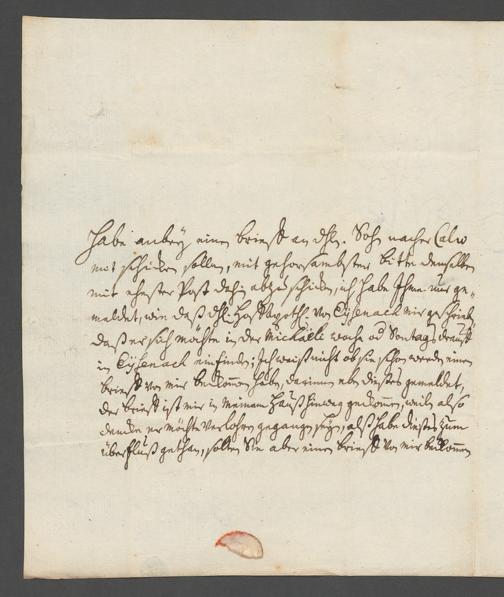 Habe anbey einen brieff an dhln. Sohn nacher Calw
mit schicken sollen, mit gehorsambster bitte denselben
mit ehester Post dahin abzuschicken, ich habe Ihme nur ge-
meldet, wie daß dhl. Hoff Apothl. von Eysenach mir geschrieben,
daß er sich möchte in der Michaëli woche od Sontags drauff
in Eysenach einfinden; Ich weiß nicht ob sie schon werden einen
brieff von mir bekommen haben, darinnen eben dieses gemeldet,
der brieff ist mir in meinem Hauß hinweg gekommen, weilen also
dencken er möchte verlohren gegangen seyn, alß habe dieses zum
überfluß gethan, solten Sie aber einen brieff von mir bekommen